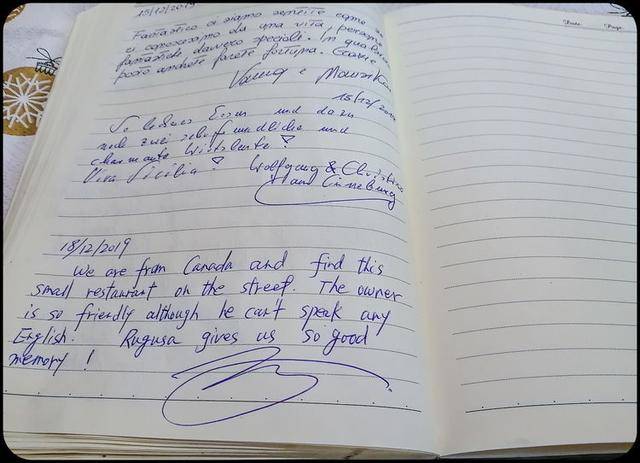 15/12/2019
Fantastico ci siamo sentite come se
ci conoscessimo da una vita, persone
fantastiche davvero speciali. In qualsiasi
posto anchete farete fortuna. Grazie
e
15/12/20
So leckeres Essen und dazu
noch zwei sehr freundliche und
charmante Wirtsleute!
Viva Sicilia! Wolfgang & Christina
aus Lüneburg
18/12/2019
We are from Canada and find this
small restaurant on the street. The owner
is so friendly although he can't speak any
English. Ragusa gives us so good
memory!
Date. Page.